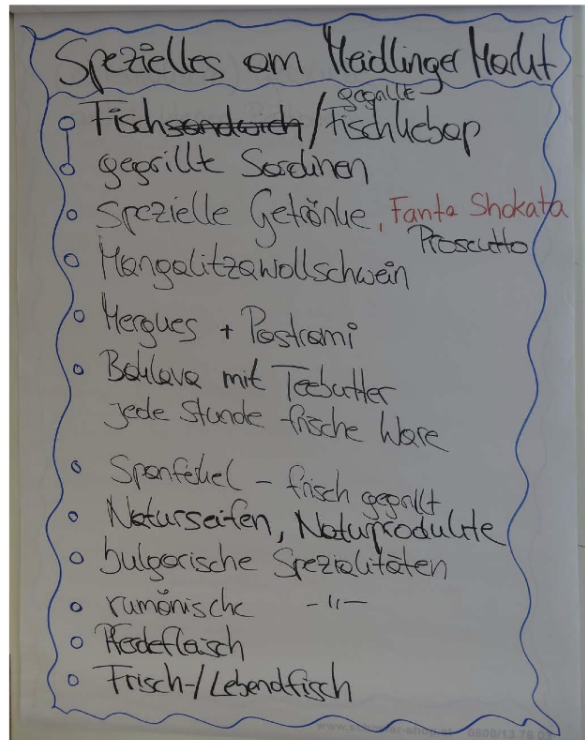 Spezielles am Meidlinger Markt
gegrillte
Fischsandwich/Fischkebap
gegrillt Sardinen
spezielle Getränke, Fanta Shokata
Proscutto
Mangalitzawollschwein
Mergues + Pastrami
Baklava mit Teebutter
jede Stunde frische Ware
Spanferkel - frisch gegrillt
Naturseifen, Naturprodukte
bulgarische Spezialitäten
rumänische -"-
Pferdefleisch
Frisch-/Lebendfisch